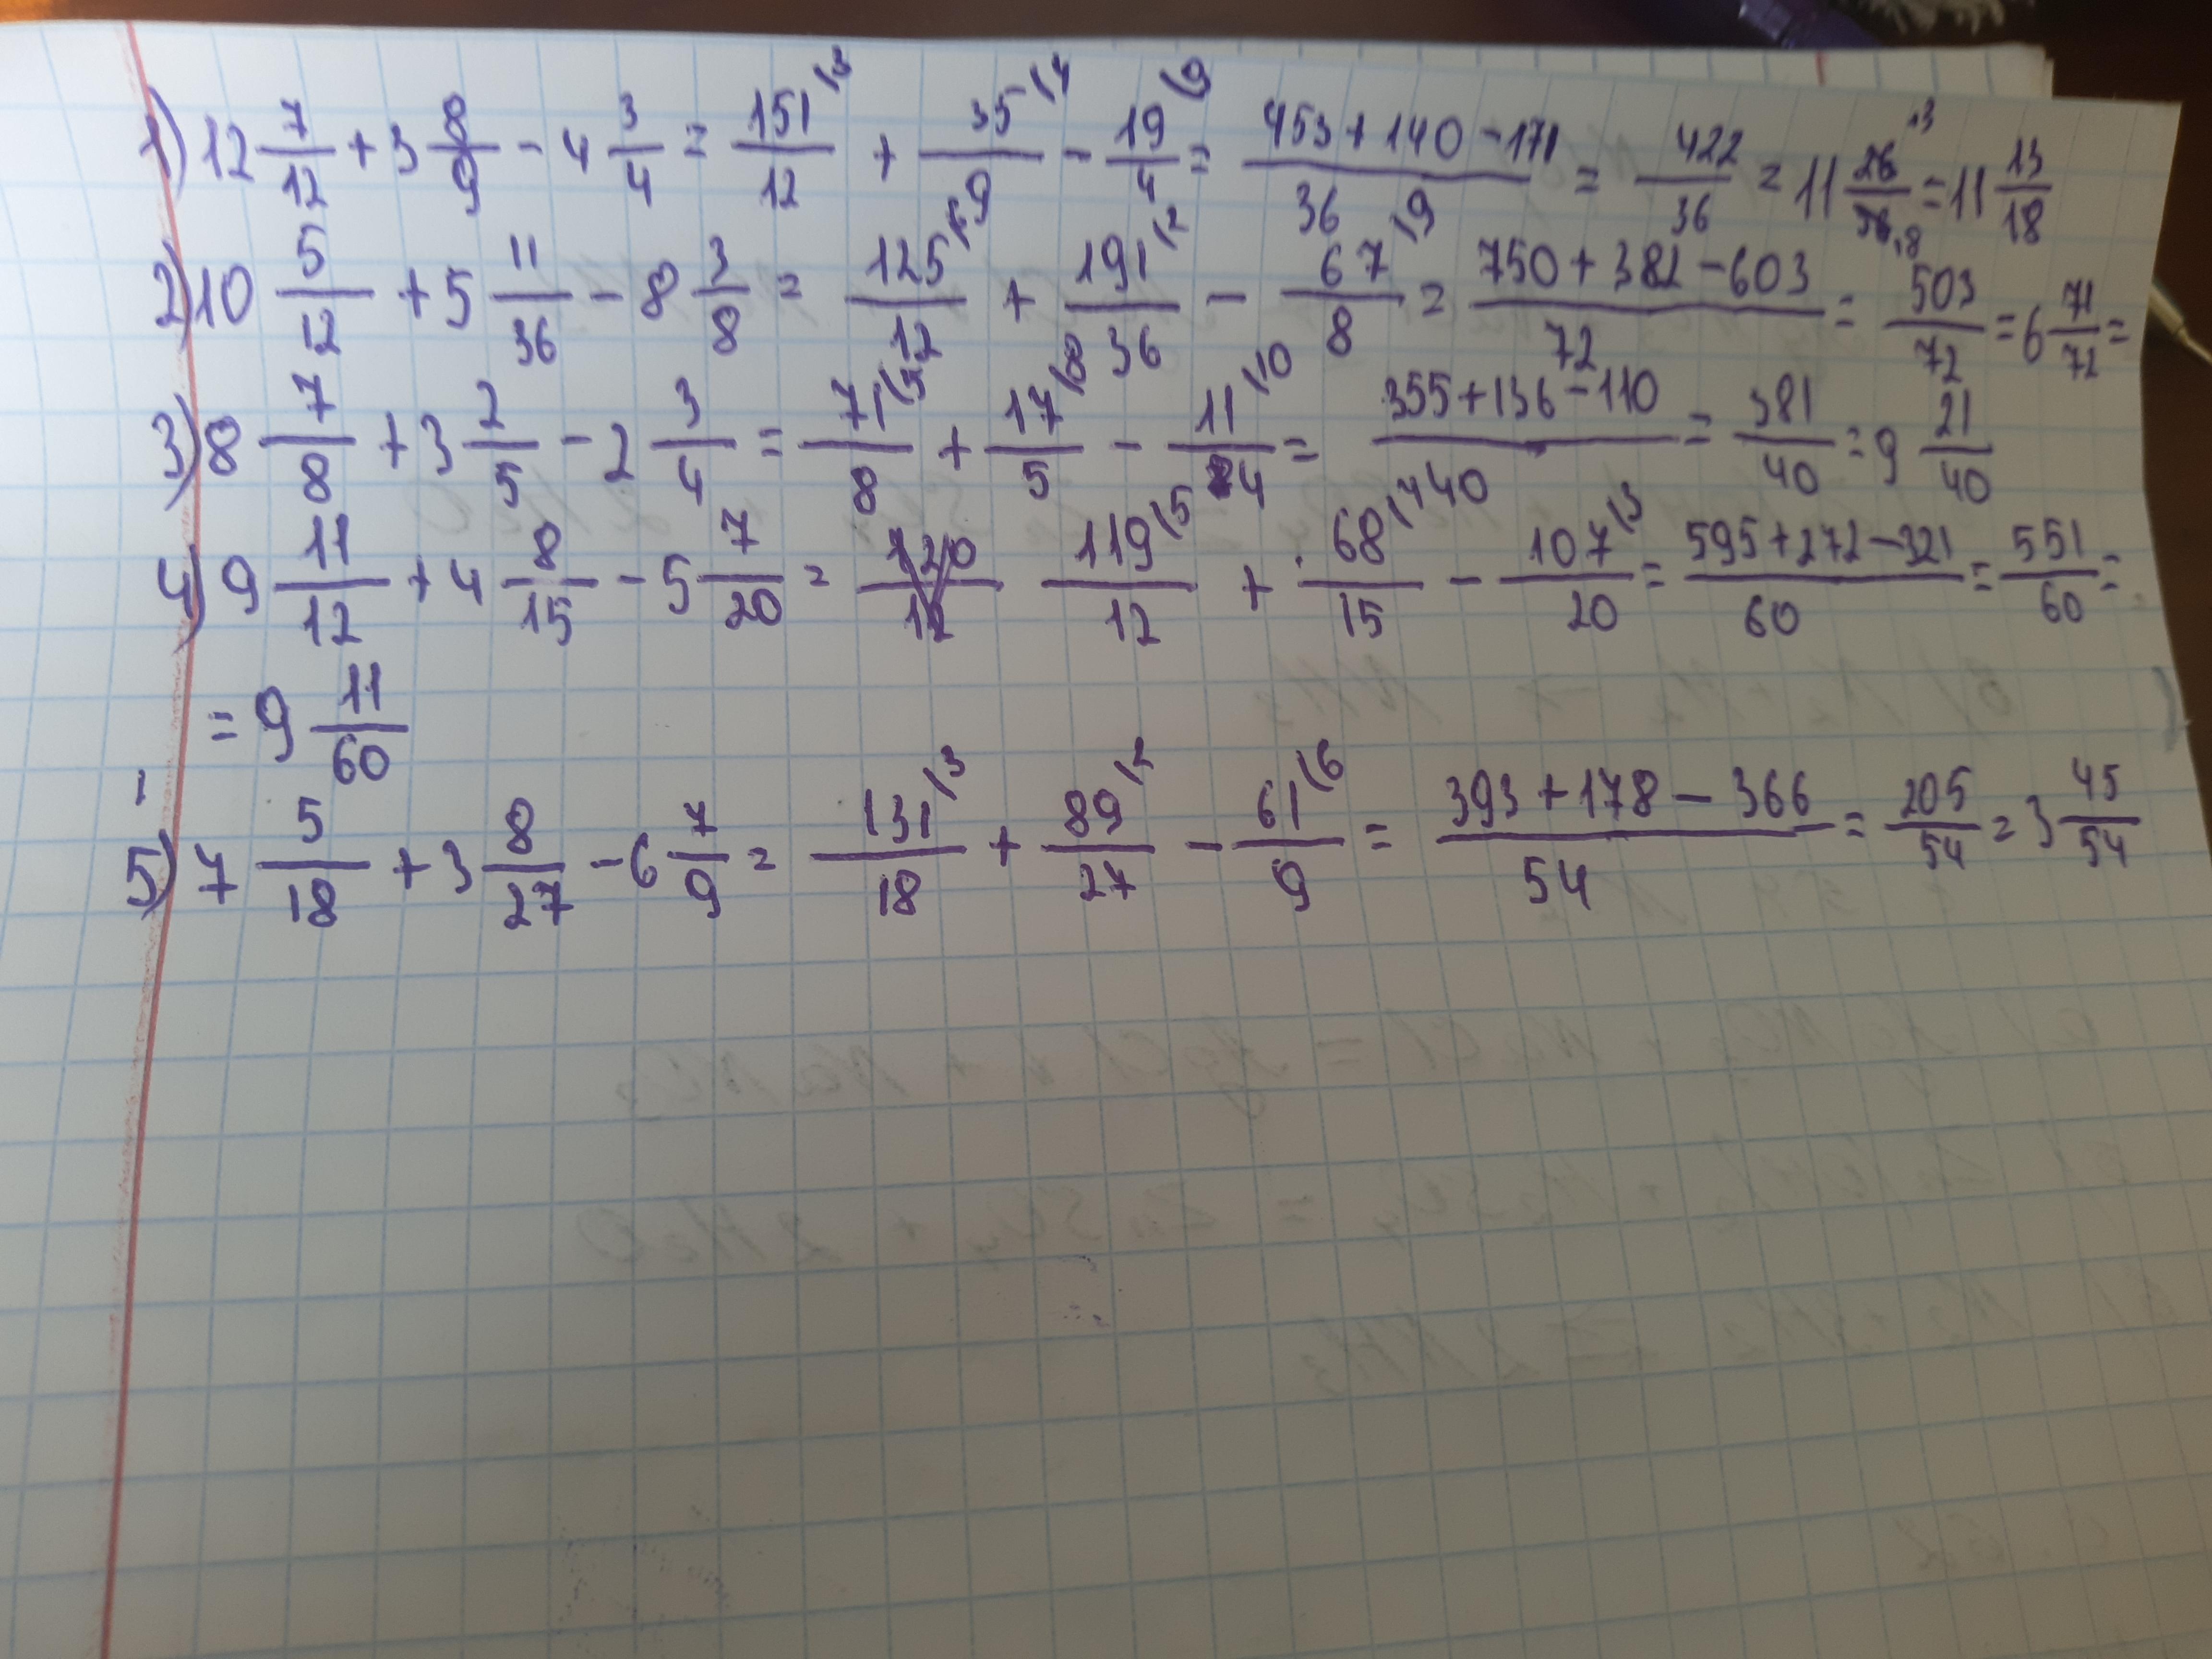 1) 12 7/12 + 3 8/9 - 4 3/4 = 151/12 \3 + 35/9 \4 - 19/4 \9 = 453+140-171/36 = 422/36 = 11 26/36 13/18 = 11 13/18
2) 10 5/12 + 5 11/36 - 8 3/8 = 125/12 \6 + 191/36 \2 - 67/8 \9 = 750+382-603/72 = 503/72 = 6 71/72 =
3) 8 7/8 + 3 2/5 - 2 3/4 = 71/8 \5 + 17/5 \8 - 11/4 \10 = 355+136-110/40 = 381/40 = 9 21/40
4) 9 11/12 + 4 8/15 - 5 7/20 = 120/12 119/12 \5 + 68/15 \4 - 107/20 \3 = 595+272-321/60 = 551/60 =
= 9 11/60
5) 7 5/18 + 3 8/27 - 6 7/9 = 131/18 \3 + 89/27 \2 - 61/9 \6 = 393+178-366/54 = 205/54 = 3 45/54